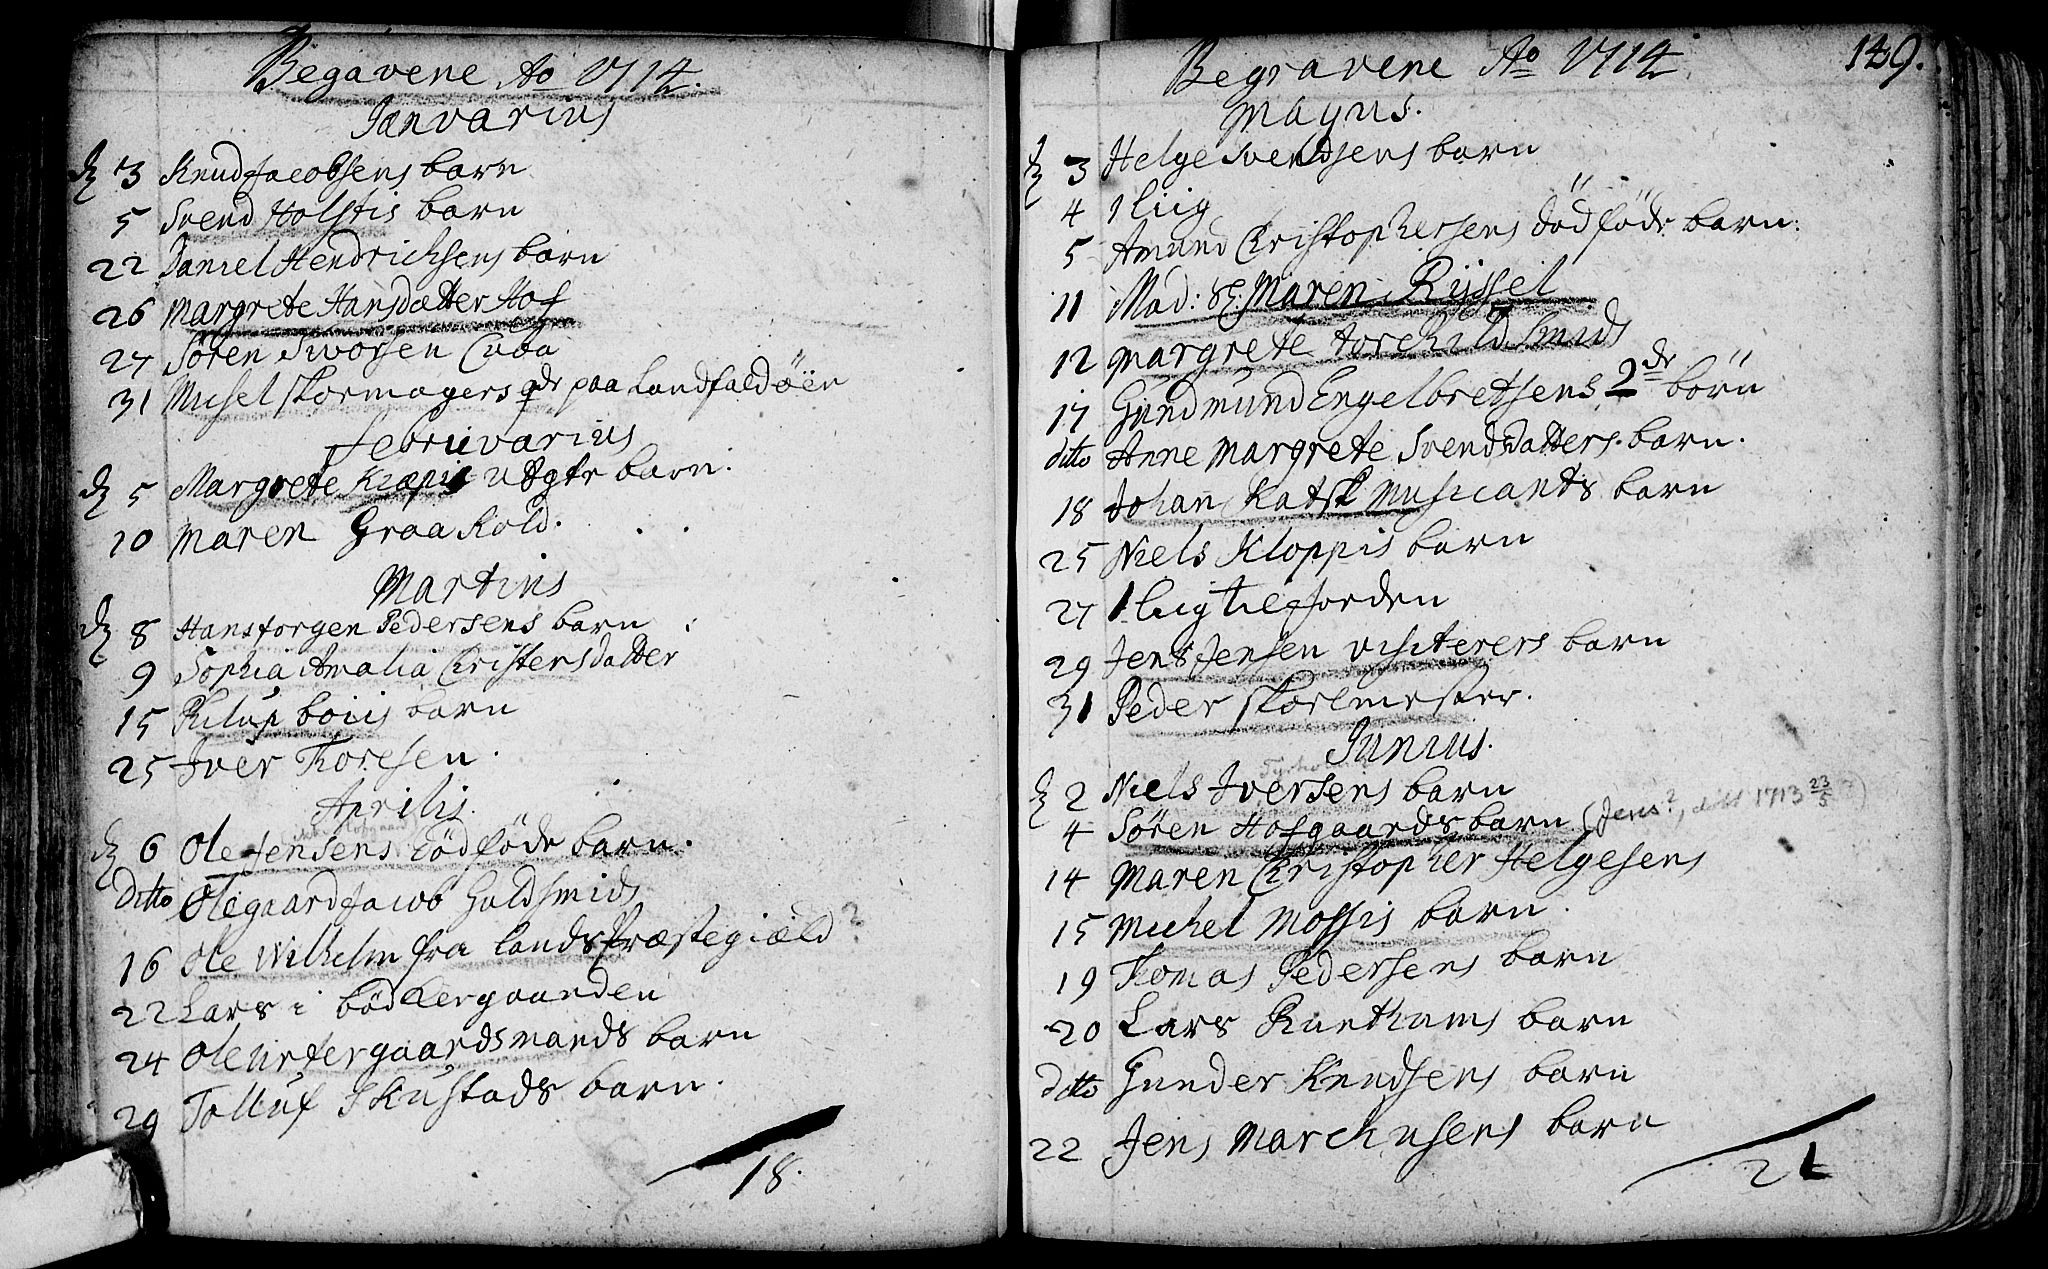 Begavene Ao 1714.
Janvarius
dz 3 Knud Jacobsens barn
5 Svend Holstis barn
22 Daniel Hendrichsens barn
26 Margrete Hansdatter Hof
27 Sören Iworsen Cuba
31 Michel skormagers paa Landfaldöen
Februvarius
dz 5 Margrete Kræpis barn.
10 Maren Graakold.
Martius
dz 8 Hans Jorgen Pedersens barn
9 Sophia Amalia Christensdatter
15 Philup boiis barn
25 Jver Thoresen.
Aprilis.
dz 6 Ole Jensens dödföde barn.
Ditto Olegaard Jacob Guldsmids
16 Ole Wilhelm fra Landspræstegiæld ?
22 Lars i bödkergaarden
24 Ole Urtergaardsmands barn
29 Tolluf Skustads barn.
18.
149.
Begravene Ao 1714.
Mayus.
dz 3 Helge Svendsens barn
4 1 liig
5 Amund Christophersens dödföde barn.
11 Mad: Sl: Maren Rüssel
12 Margrete Torchild Smids
17 Gundmund Engelbretsens 2de börn
ditto Anne Margrete Svendsdatters barn.
18 Johan Katsk Musicants barn
25 Niels Kloppis barn
27 1 liig til Jorden
29 Jens Jensen visiterers barn
31 Peder skorlmester.
Junius.
dz 2 Niels Jversens barn
4 Sören Hofgaards barn (Jens?, 1713 23/5 ?)
14 Maren Christopher Helgesens
15 Michel Mossis barn.
19 Thomas Pedersens barn
20 Lars Runthums barn
ditto Gunder Knudsens barn
22 Jens Marchusens barn
21